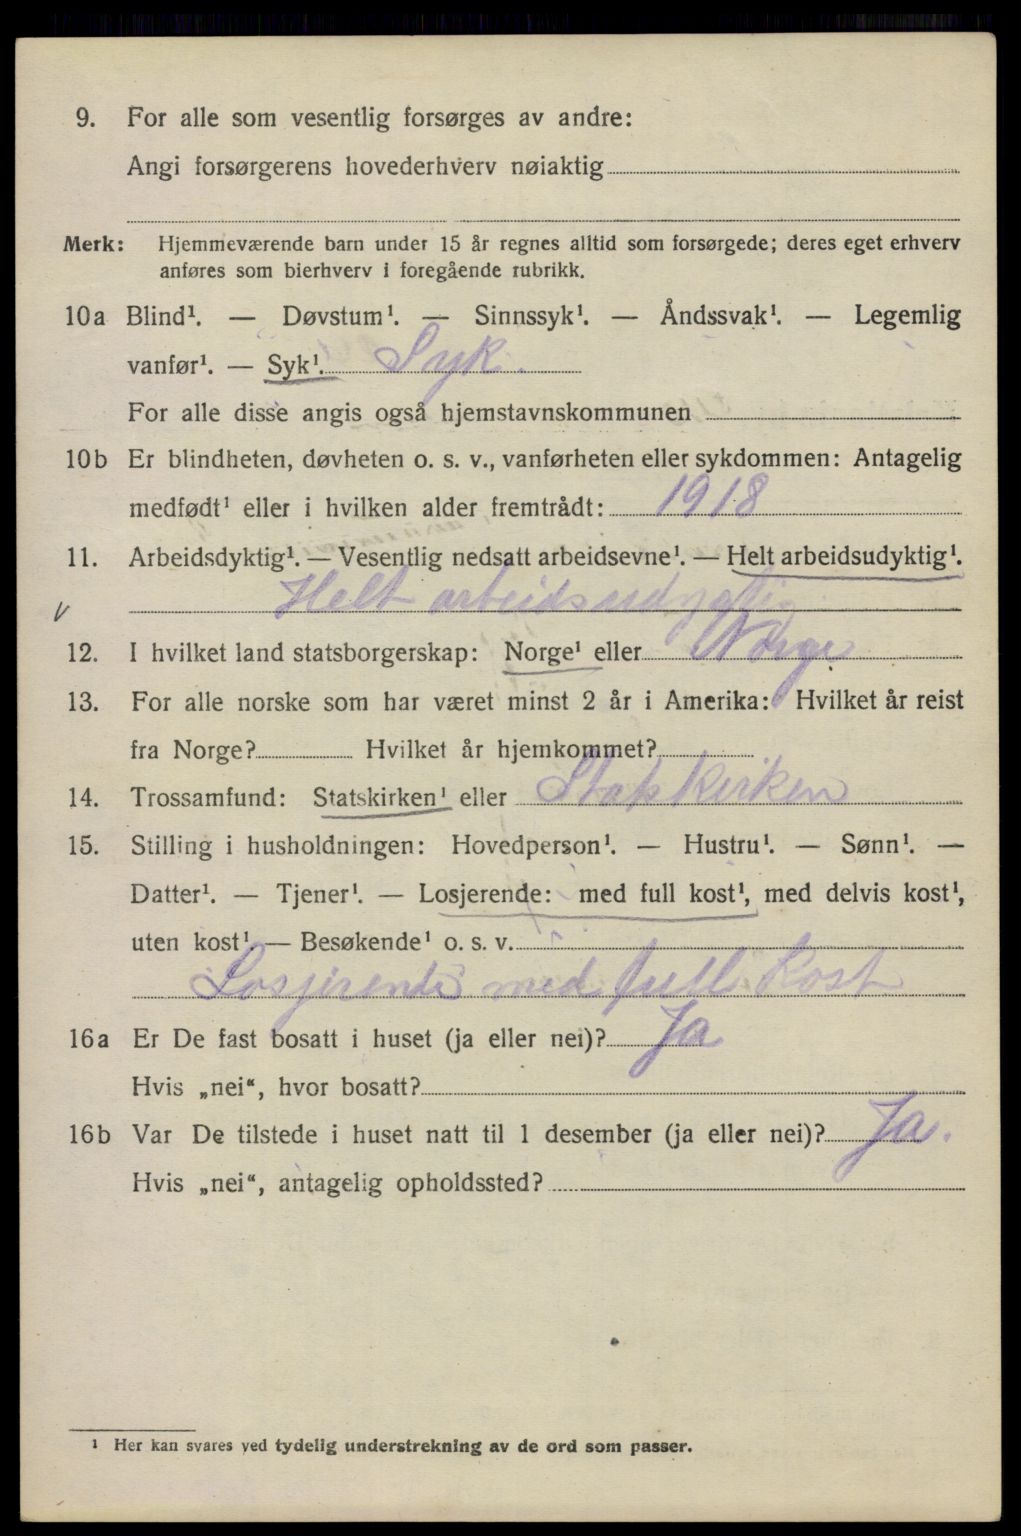 9. For alle som vesentlig forsørges av andre:
Angi forsørgerens hovederhverv nøiaktig
Merk: Hjemmeværende barn under 15 år regnes alltid som forsørgede; deres eget erhverv
anføres som bierhverv i foregående rubrikk.
10a Blind¹. — Døvstum¹. — Sinnssyk¹. — Åndssvak¹. — Legemlig
vanfør¹. — Syk¹. Syk.
For alle disse angis også hjemstavnskommunen
10b Er blindheten, døvheten o. s. v., vanførheten eller sykdommen: Antagelig
medfødt¹ eller i hvilken alder fremtrådt: 1918
11. Arbeidsdyktig¹. — Vesentlig nedsatt arbeidsevne¹. — Helt arbeidsudyktig¹.
v Helt arbeidsudygtig
12. I hvilket land statsborgerskap: Norge¹ eller Norge
13. For alle norske som har været minst 2 år i Amerika: Hvilket år reist
fra Norge? Hvilket år hjemkommet?
14. Trossamfund: Statskirken¹ eller Statskirken
15. Stilling i husholdningen: Hovedperson¹. — Hustru¹. — Sønn¹. —
Datter¹. — Tjener¹. — Losjerende: med full kost¹, med delvis kost¹,
uten kost¹. — Besøkende¹ o. s. v.
Losjerende med full Kost
16a Er De fast bosatt i huset (ja eller nei)? Ja
Hvis „nei“, hvor bosatt?
16b Var De tilstede i huset natt til 1 desember (ja eller nei)? Ja.
Hvis „nei“, antagelig opholdssted?
¹ Her kan svares ved tydelig understrekning av de ord som passer.